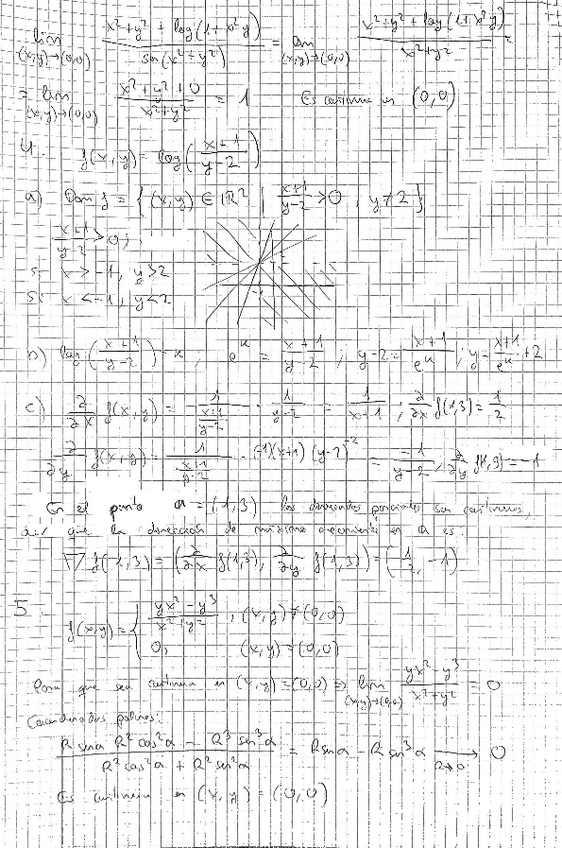 lim (x,y)→(0,0) x²+y² + log(1+x²y) / sen(x²+y²) = lim (x,y)→(0,0) x²+y² + log(1+x²y) / x²+y² =
= lim (x,y)→(0,0) x²+y²+0 / x²+y² = 1 Es continua en (0,0)
4. f(x,y) = log(x+1 / y-2)
a) Dom f = { (x,y) ∈ ℝ² | x+1 / y-2 > 0 , y≠2 }
x+1 / y-2 > 0 ;
Si x > -1, y > 2
Si x < -1, y < 2
b) log(x+1 / y-2) = k , e^k = x+1 / y-2 , y-2 = x+1 / e^k ; y = x+1 / e^k + 2
c) ∂/∂x f(x,y) = 1 / (x+1 / y-2) · 1 / y-2 = 1 / x+1 ; ∂/∂x f(1,3) = 1/2
∂/∂y f(x,y) = 1 / (x+1 / y-2) · (-1)(x+1)(y-2)^-2 = -1 / y-2 , ∂/∂y f(1,3) = -1
En el punto a = (1,3) las derivadas parciales son continuas,
así que la dirección de máximo crecimiento en a es:
∇f(1,3) = (∂/∂x f(1,3), ∂/∂y f(1,3)) = (1/2, -1)
5. f(x,y) = { yx² - y³ / x²+y² , (x,y) ≠ (0,0)
0, (x,y) = (0,0)
Para que sea continua en (x,y) = (0,0) ⇒ lim (x,y)→(0,0) yx² - y³ / x²+y² = 0
Coordenadas polares:
R sen α R² cos² α - R³ sen³ α / R² cos² α + R² sen² α = R sen α - R sen³ α → R→0 0
Es continua en (x,y) = (0,0)